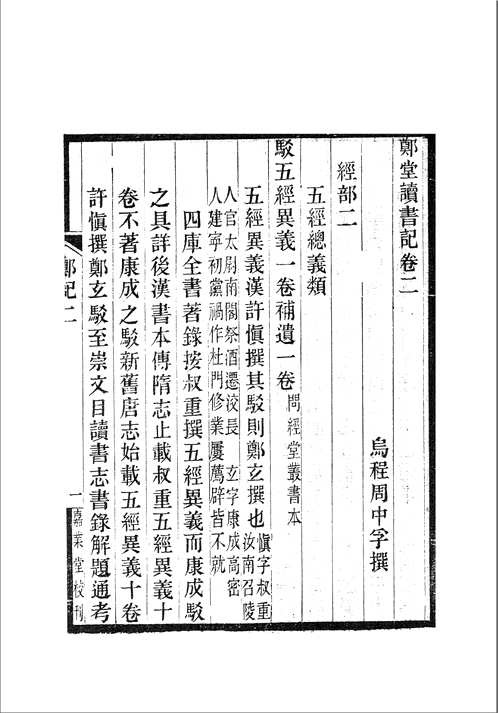 鄭堂讀書記卷二
烏程周中孚撰
經部二
五經總義類
駁五經異義一卷補遺一卷 問經堂叢書本
五經異義漢許慎撰其駁則鄭玄撰也 慎字叔重
汝南召陵
人官太尉南閣祭酒遷洨長 玄字康成高密
人建寧初黨禍作杜門修業屢薦辟皆不就
四庫全書著錄按叔重撰五經異義而康成駁
之具詳後漢書本傳隋志止載叔重五經異義十
卷不著康成之駁新舊唐志始載五經異義十卷
許慎撰鄭玄駁至崇文目讀書志書錄解題通考
鄭記二 一 嘉業堂校刊